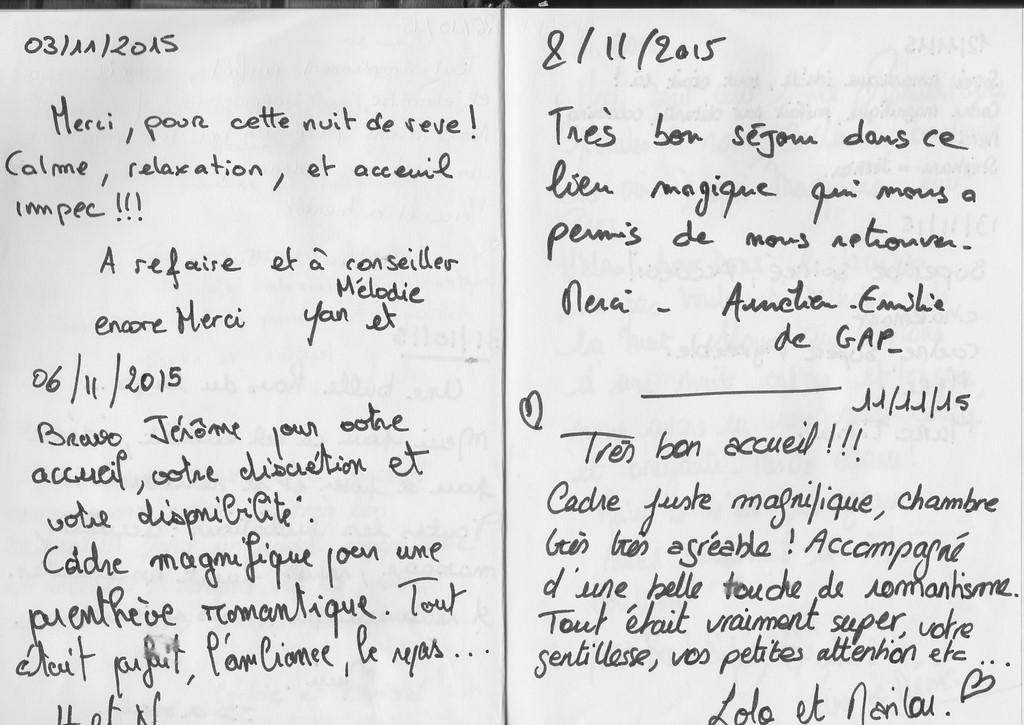 03/11/2015
Merci, pour cette nuit de reve !
Calme, relaxation, et acceuil
impec !!!
A refaire et à conseiller
encore Merci Yan et Mélodie
06/11/2015
Bravo Jérôme pour votre
accueil, votre discrétion et
votre disponibilité
Câdre magnifique pour une
parenthèse romantique. Tout
était parfait, l'ambiance, le repas...
H et N
8/11/2015
Tres bon séjour dans ce
lieu magique qui nous a
permis de nous retrouver.
Merci - Aurélien - Emilie
de GAP_
11/11/15
Très bon accueil !!!
Cadre juste magnifique, chambre
très très agréable ! Accompagné
d'une belle touche de romantisme.
Tout était vraiment super, votre
gentillesse, vos petites attention etc...
Lola et Marilou.